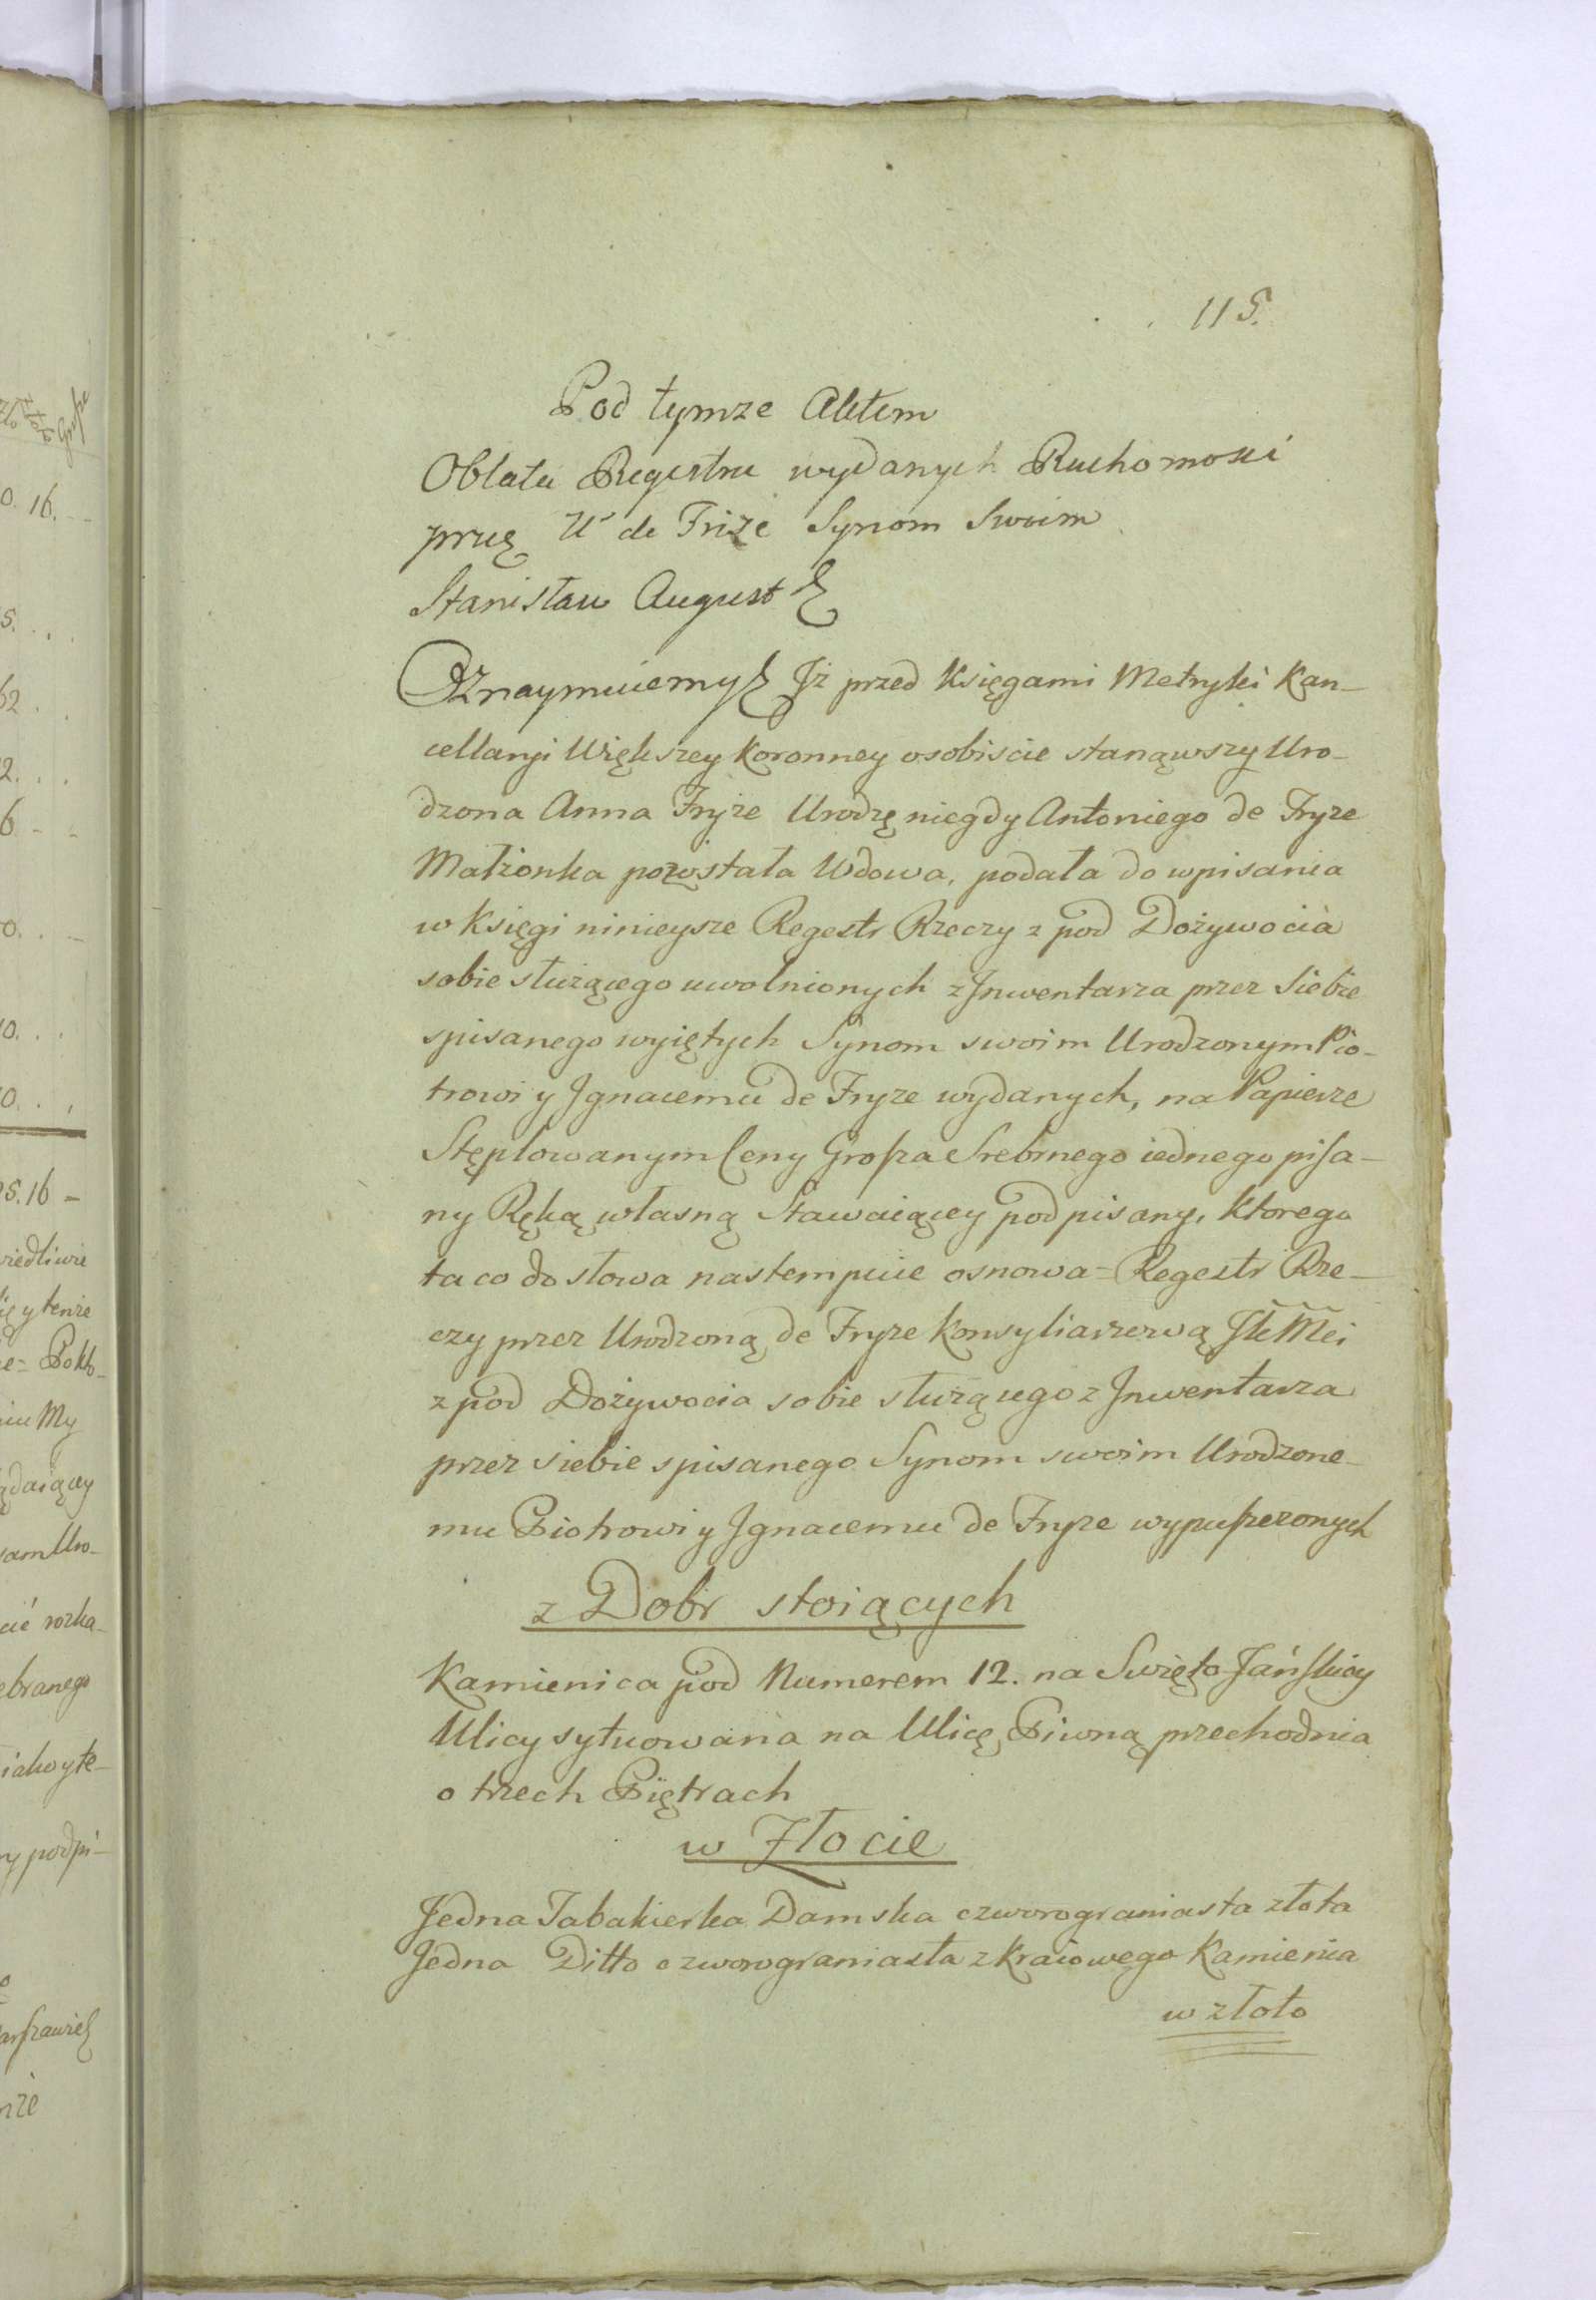 115.
Pod tymze Aktem
Oblata Regestru wydanych Ruchomosci
przez Ur de Frize Synom Swoim
Stanisław August &
Oznaymuiemy & Jż przed Księgami Metryki Kan-
cellaryi Większey Koronney osobiscie stanąwszy Uro-
dzona Anna Fryze Urodzę niegdy Antoniego de Fryze
Małżonka pozostała Wdowa, podała do wpisania
w Księgi ninieysze Regestr Rzeczy z pod Dożywocia
sobie służącego uwolnionych z Jnwentarza przez siebie
spisanego wyiętych Synom swoim Urodzonym Pio-
trowi y Jgnacemu de Fryze wydanych, na Papierze
Stęplowanym Ceny Grosza Srebrnego iednego pisa-
ny Ręką własną Stawaiącey podpisany, ktorego
ta co do słowa nastempuie osnowa = Regestr Rze-
czy przez Urodzoną de Fryze Konsyliarzową JKMci
z pod Dożywocia sobie służącego z Jnwentarza
przez siebie spisanego Synom swoim Urodzone-
mu Piotrowi y Jgnacemu de Fryze wypuszczonych
z Dobr stoiących
Kamienica pod Numerem 12. na Swięto Jańskiey
Ulicy sytuowana na Ulicę Piwną przechodnia
o trzech Piętrach
w Złocie
Jedna Tabakierka Damska czworograniasta złota
Jedna Ditto czworograniasta z kraiowego Kamienia
w złoto
0. 16. --
62 . .
2. . .
6 - -
0. . -
10. . .
0. . ,
5.16 -
iedliwie
ię y tenże
e = Pokło-
iu My
ądaiący
sam Uro-
cić rozka-
ebranego
iako y te-
y podpi-